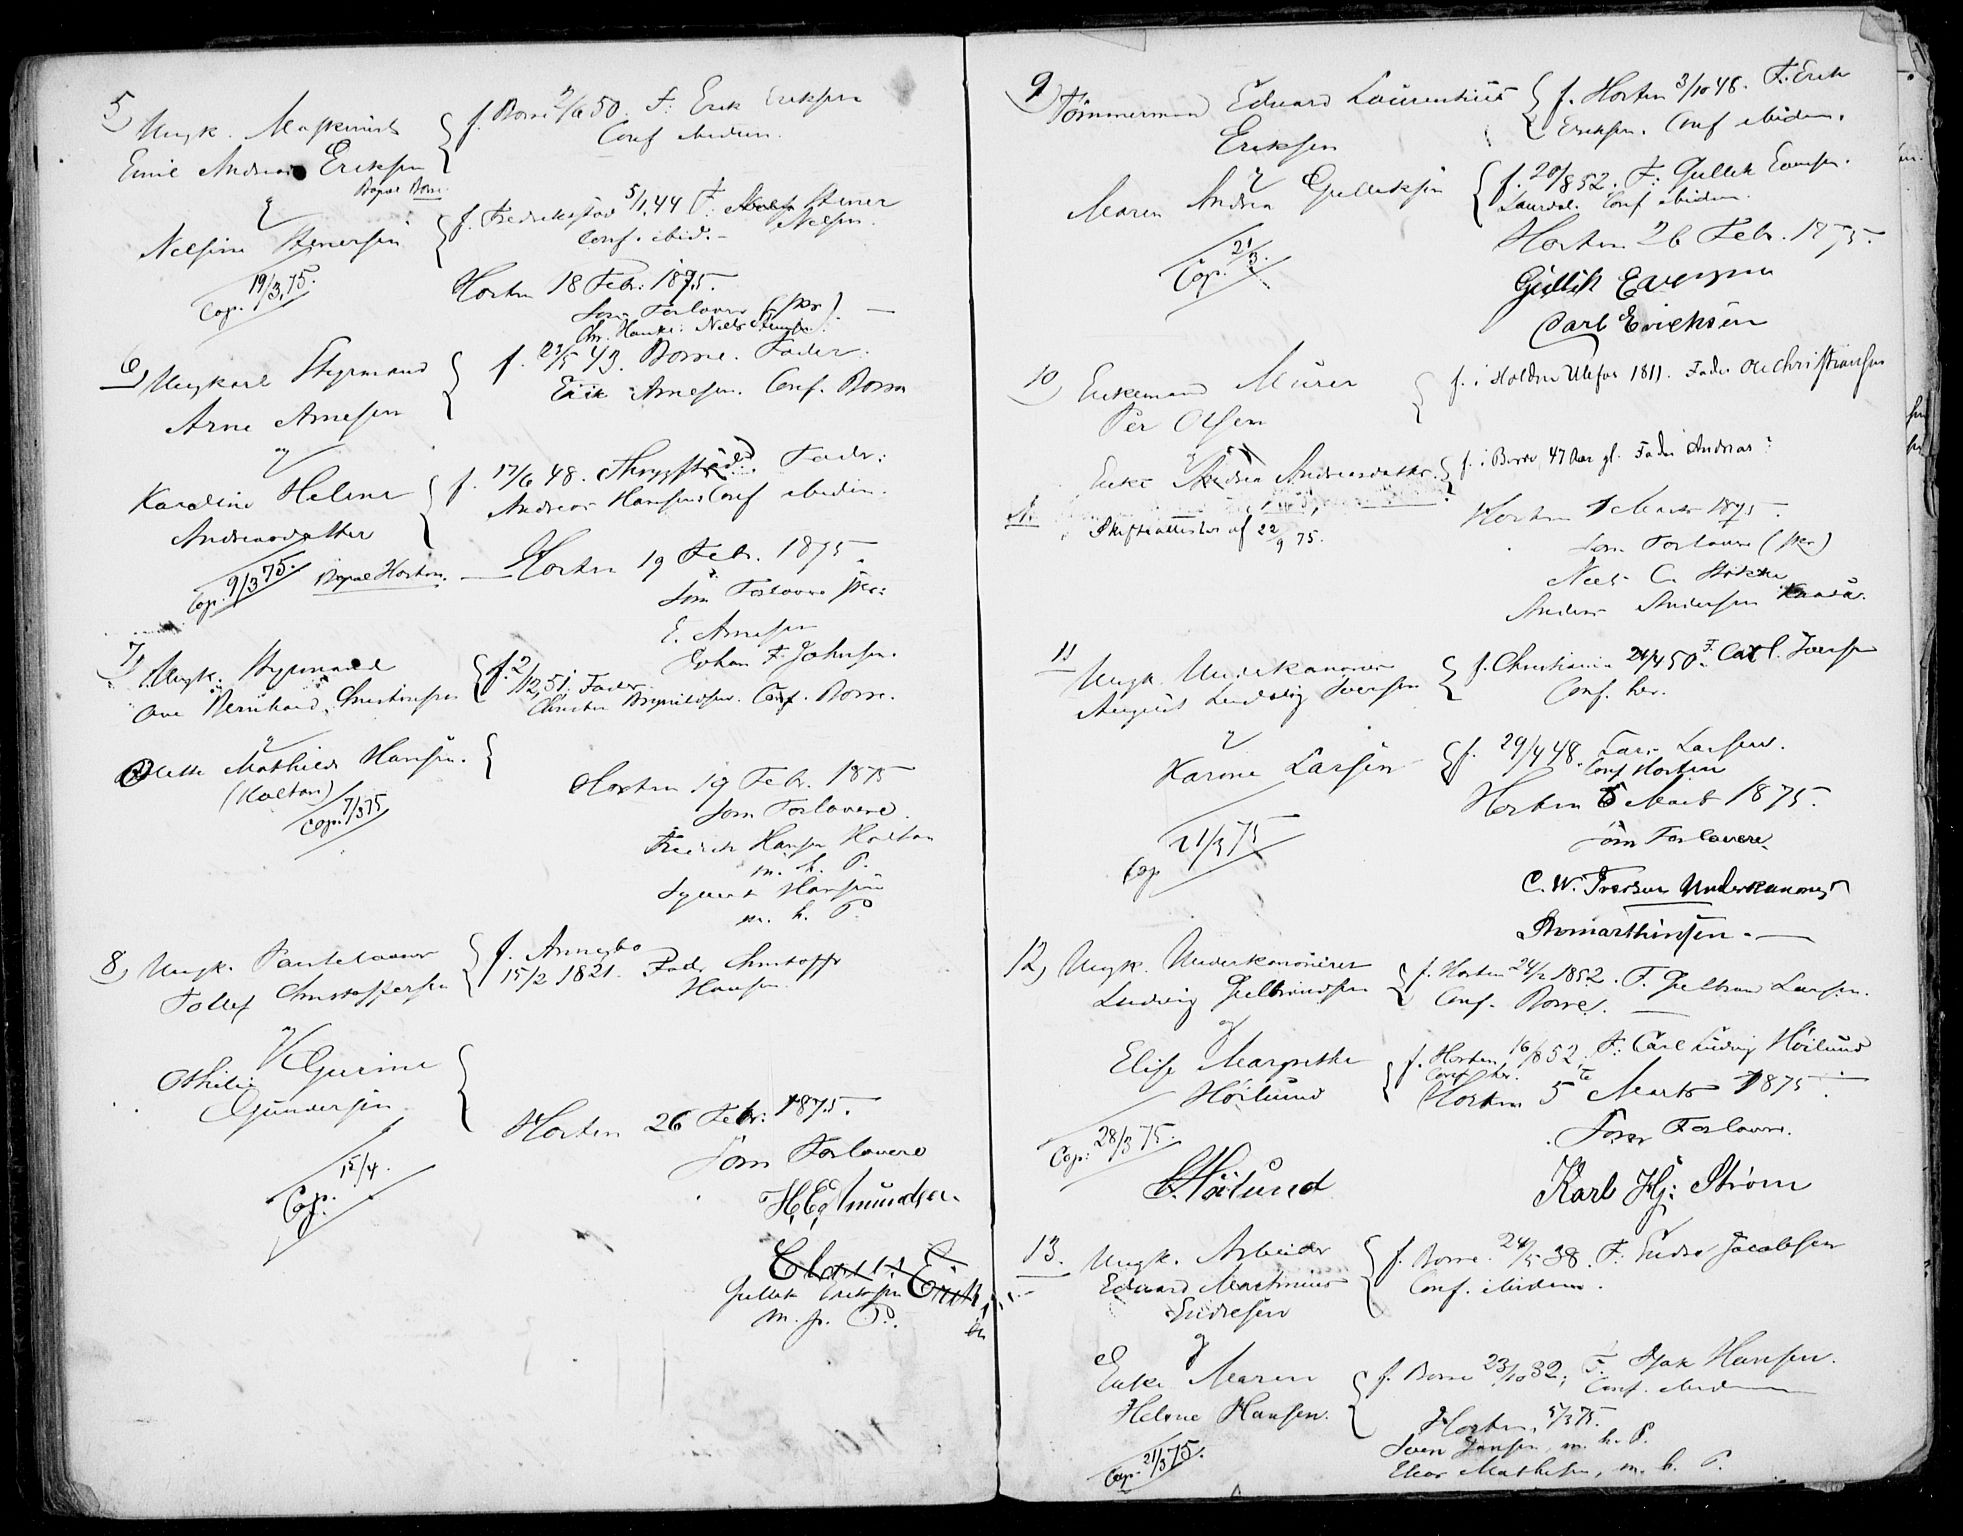 5) Ungk. Maskinist
Emil Andreas Eriksen
Bopæl Borre.
&
Nelsine Stenersen
Cop. 19/3 75.
f. Borre 2/6 50. F: Erik Eriksen
Conf. ibidem.
f. Fredrikstad 5/1 44 F: Stener
Nielsen.
Conf. ibid. –
Horten 18 Febr. 1875.
Som Forlovere (skr.)
Chr. Hauge: Niels
6) Ungkarl Styrmand
Arne Arnesen
og
Karoline Helene
Andreasdatter
Cop. 9/3 75. Bopæl Horten.
f. 23/5 43. Borre. Fader:
Erik Arnesen. Conf. Borre
f. 17/6 48. Fader:
Andreas Hansen Conf ibidem.
Horten 19 Febr. 1875
Som Forlovere skr:
E. Arnesen
Johan F. Johnsen.
7) Ungk. Styrmand
Ove Bernhard Christensen
&
Olette Mathilde Hansen.
(Holtan)
Cop. 7/3 75
f. 2/12 51. Fader
Christen Brynildsen. Conf. Borre.
Horten 19 Febr. 1875
Som Forlovere.
Fredrik Hansen Holtan
m. h. P.
Syvert Hansen
m. h. P.
8) Ungk.
Tollef Christoffersen
og
Othilie Gurine
Gundersen
Cop. 15/4.
f. Annebo
15/2 1821. Fader Christoffer
Hansen.
Horten 26 Febr: 1875.
Som Forlovere
H. Edmundsen.
Gullik Eriksen
m. p. P.
9) Tømmermand Eduard Laurentius
Eriksen
&
Maren Andrea Gulliksen
Cop. 21/3.
f. Horten 3/10 48. F: Erik
Eriksen. Conf ibidem.
f. 20/8 52. F: Gullik Evensen.
Laurdal. Conf ibidem.
Horten 26 Febr. 1875.
Gullik Evensen
Carl Ericksen
10) Enkemand Murer
Per Olsen
&
Enke Andrea Andreasdatter.
Skifteattester af 22/9 75.
f. i Holden Ulefos 1811. Fader Ole Christiansen
f. i Borre, 47 Aar gl. Fader Andreas?
Horten 1 Marts 1875.
Som Forlovere (skr)
Niels C. Holske
Anders Andersen
11 Ungk. Underkanoner
August Ludvig Iversen
&
Karine Larsen
Cop 21/3 75
f. Christiania 24/4 50 F. Carl Iversen
Conf. her.
f. 29/4 48. Lars Larsen.
Conf Horten
Horten 5 Marts 1875.
som Forlovere.
C. W. Iversen Underkanoner
12) Ungk. Underkanonerer
Ludvig Gulbrandsen
og
Elise Margrethe
Höilund
Cop: 28/3 75.
f. Horten 24/2 1852. F. Gulbran Larsen.
Conf. Borre. –
f. Horten 16/8 52. F: Carl Ludvig Höilund
Conf. her.
Horten 5te Marts 1875.
Som Forlovere.
C. Höilund
Karl Hj: Strøm
13. Ungk. Arbeider
Eduard Martinius
Endresen
og
Enke Maren
Helene Hansen.
Cop. 21/3 75.
f. Borre 24/5 38. F: Endre Jacobsen
Conf. ibidem.
f. Borre 23/10 32, F. Isak Hansen.
Conf. ibidem
Horten, 5/3 75.
Sven Jensen, m. h. P.
Elias Mathisen, m. h. P.